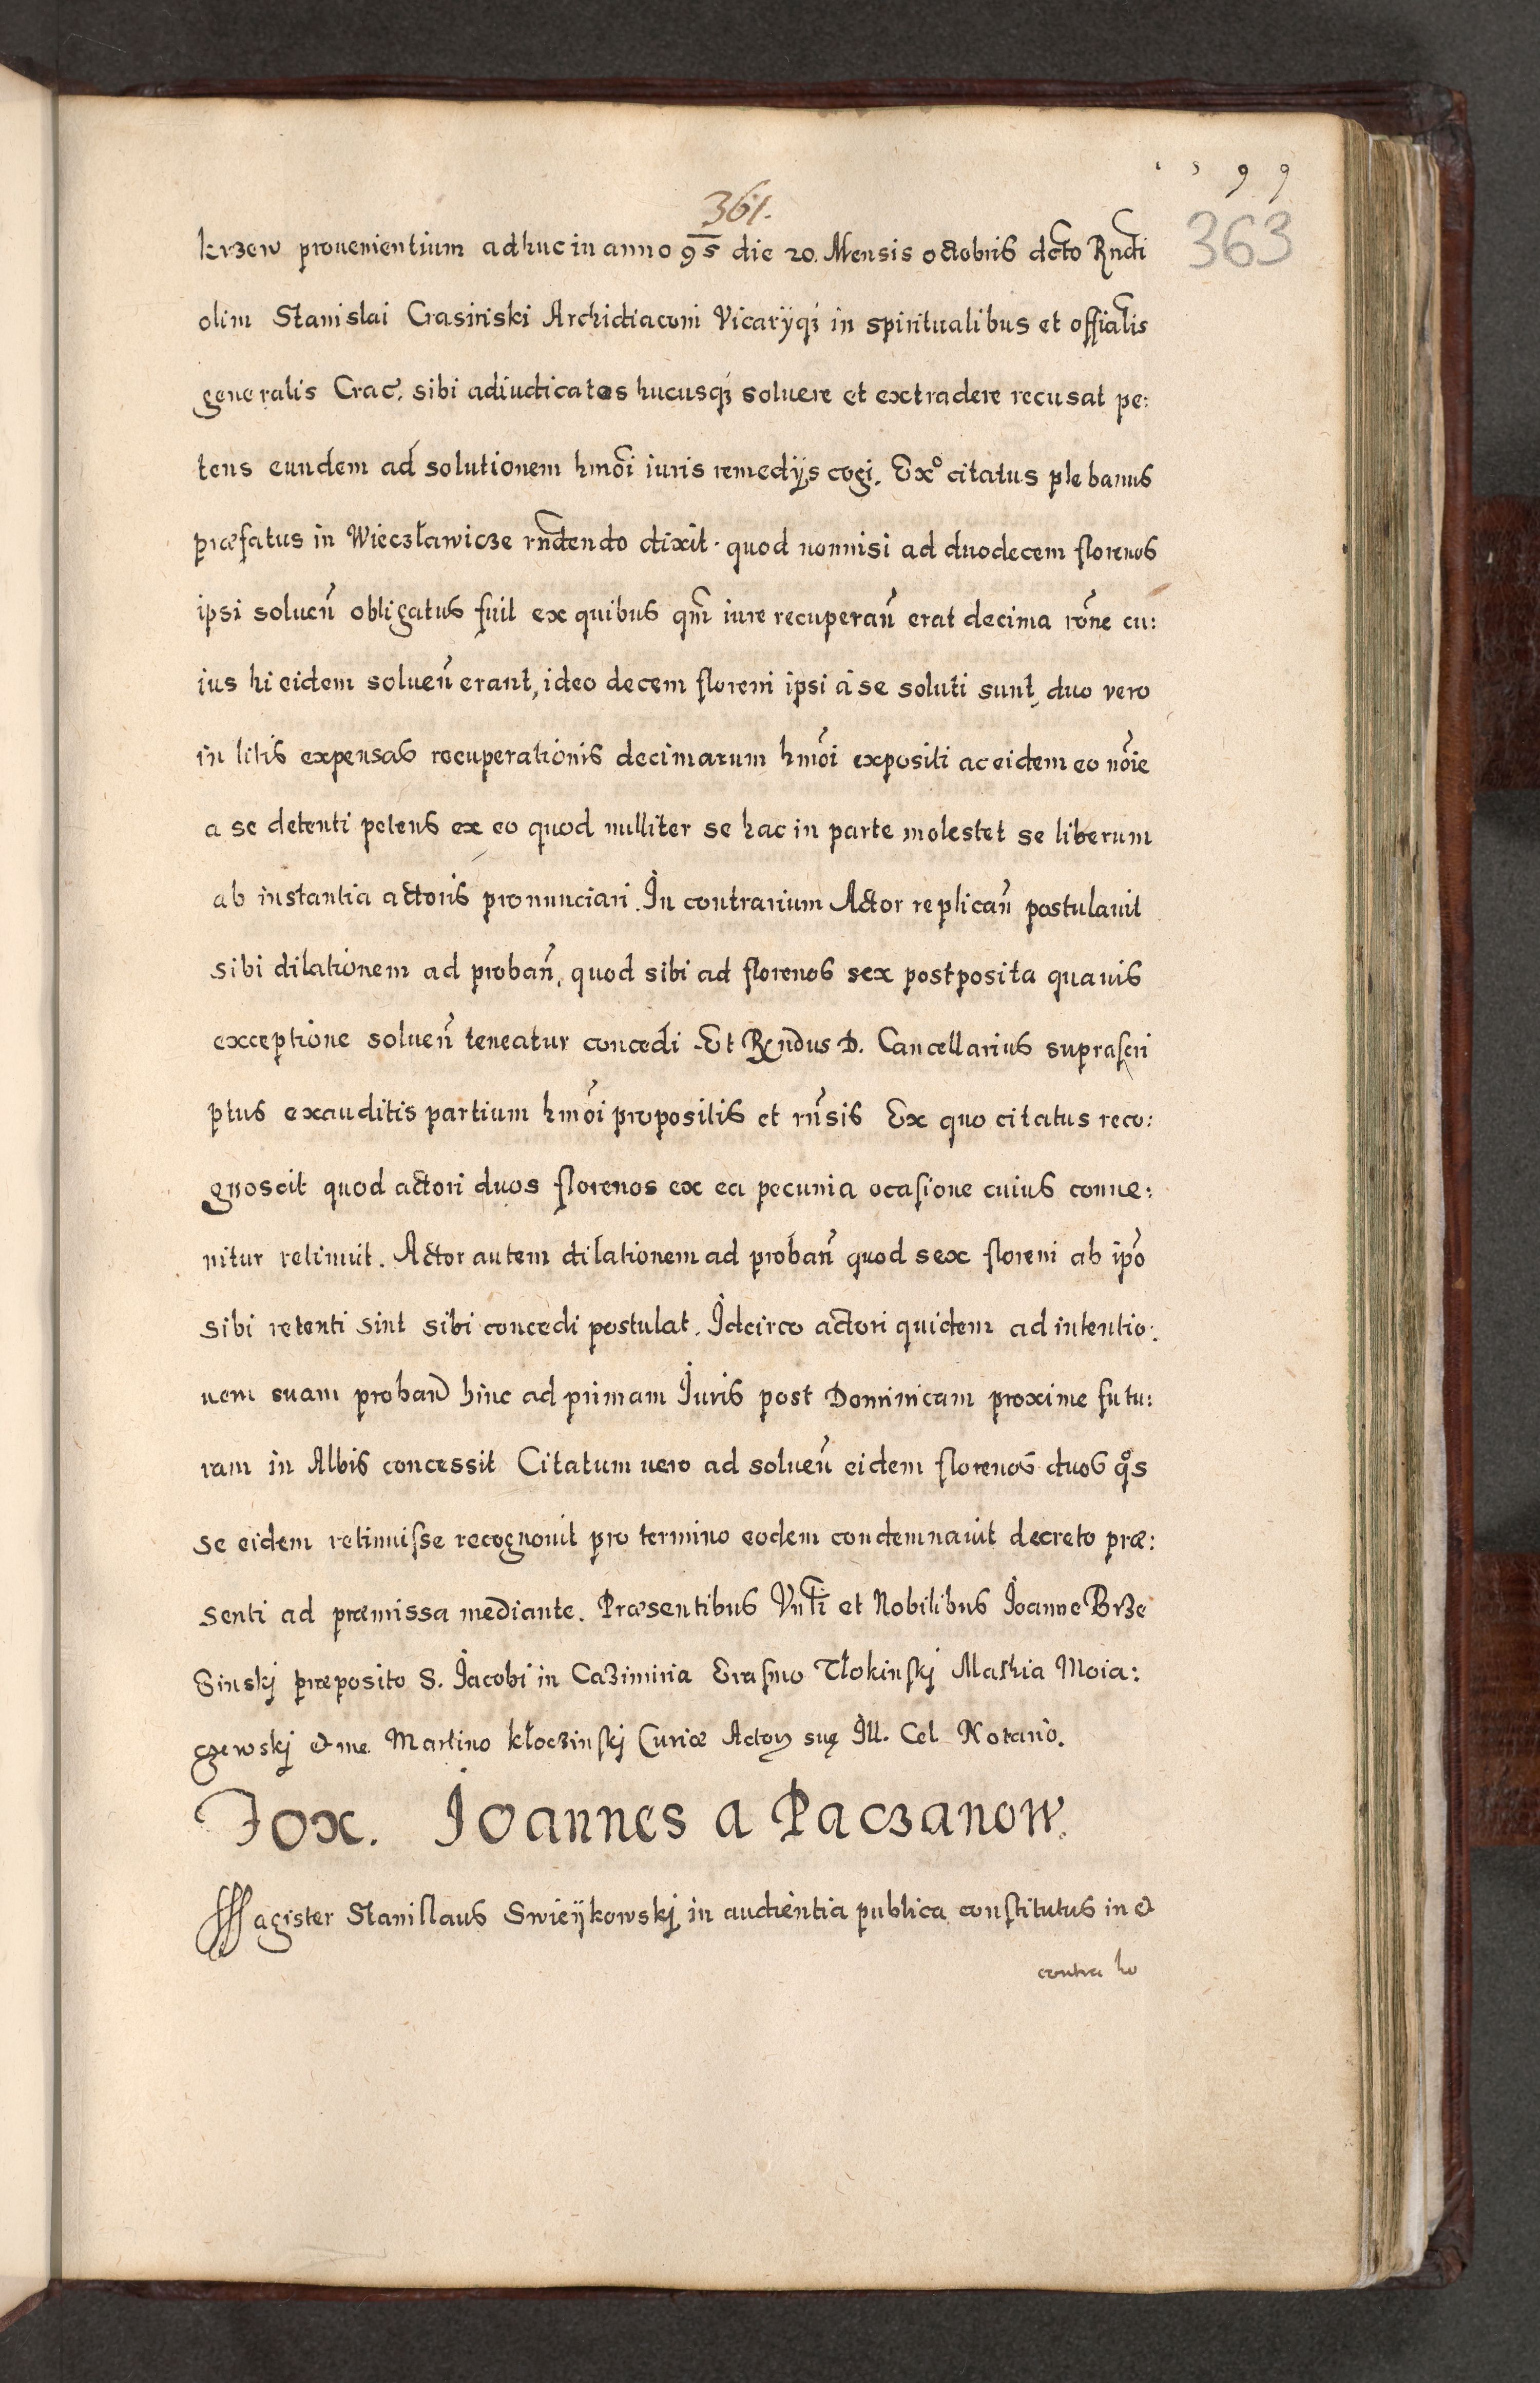 1 5 9 9
361.
363
krzew prouenientium adhuc in anno 95 die 20. Mensis octobris dcto Rndi
olim Stanislai Crasinski Archidiaconi Vicaryqꝫ in spiritualibus et offialis
generalis Crac. sibi adiudicatas hucusqꝫ soluere et extradere recusat pe:
tens eundem ad solutionem hmōi iuris remedÿs cogi. Exº citatus plebanus
præfatus in Wieczławicze rn̄dendo dixit. quod nonnisi ad duodecem florenos
ipsi soluen̄ obligatus fuit ex quibus qm̄ iure recuperan̄ erat decima rōne cu:
ius hi eidem soluen̄ erant, ideo decem floreni ipsi à se soluti sunt, duo vero
in litis expensas recuperationis decimarum hmōi expositi ac eidem eo nōie
a se detenti petens ex eo quod nulliter se hac in parte molestet se liberum
ab instantia actoris pronunciari. In contrarium Actor replican̄ postulauit
sibi dilationem ad proban̄, quod sibi ad florenos sex postposita quauis
exceptione soluen̄ teneatur concedi Et Rndus D. Cancellarius suprascri
ptus exauditis partium hmōi propositis et rn̄sis Ex quo citatus reco:
gnoscit quod actori duos florenos ex ea pecunia ocasione cuius conue:
nitur retinuit. Actor autem dilationem ad proban̄ quod sex floreni ab ipō
sibi retenti sint sibi concedi postulat. Idcirco actori quidem ad intentio:
nem suam proban̄ hinc ad primam Iuris post Dominicam proxime futu:
ram in Albis concessit Citatum uero ad soluen̄ eidem florenos duos qºs
se eidem retinuisse recognouit pro termino eodem condemnauit decreto præ:
senti ad præmissa mediante. Præsentibus Vn̄li et Nobilibus Ioanne Brze
Sinskj præposito S. Iacobi in Cazimiria Erasmo Tłokinskj Mathia Moia:
czewskj & me Martino Kłoczinskj Curiæ Actoꝝ suę Ill. Cel. Notario.
Iox. Ioannes a Paczanow.
Magister Stanislaus Swieÿkowskj in audientia publica constitutus in &
contra ho